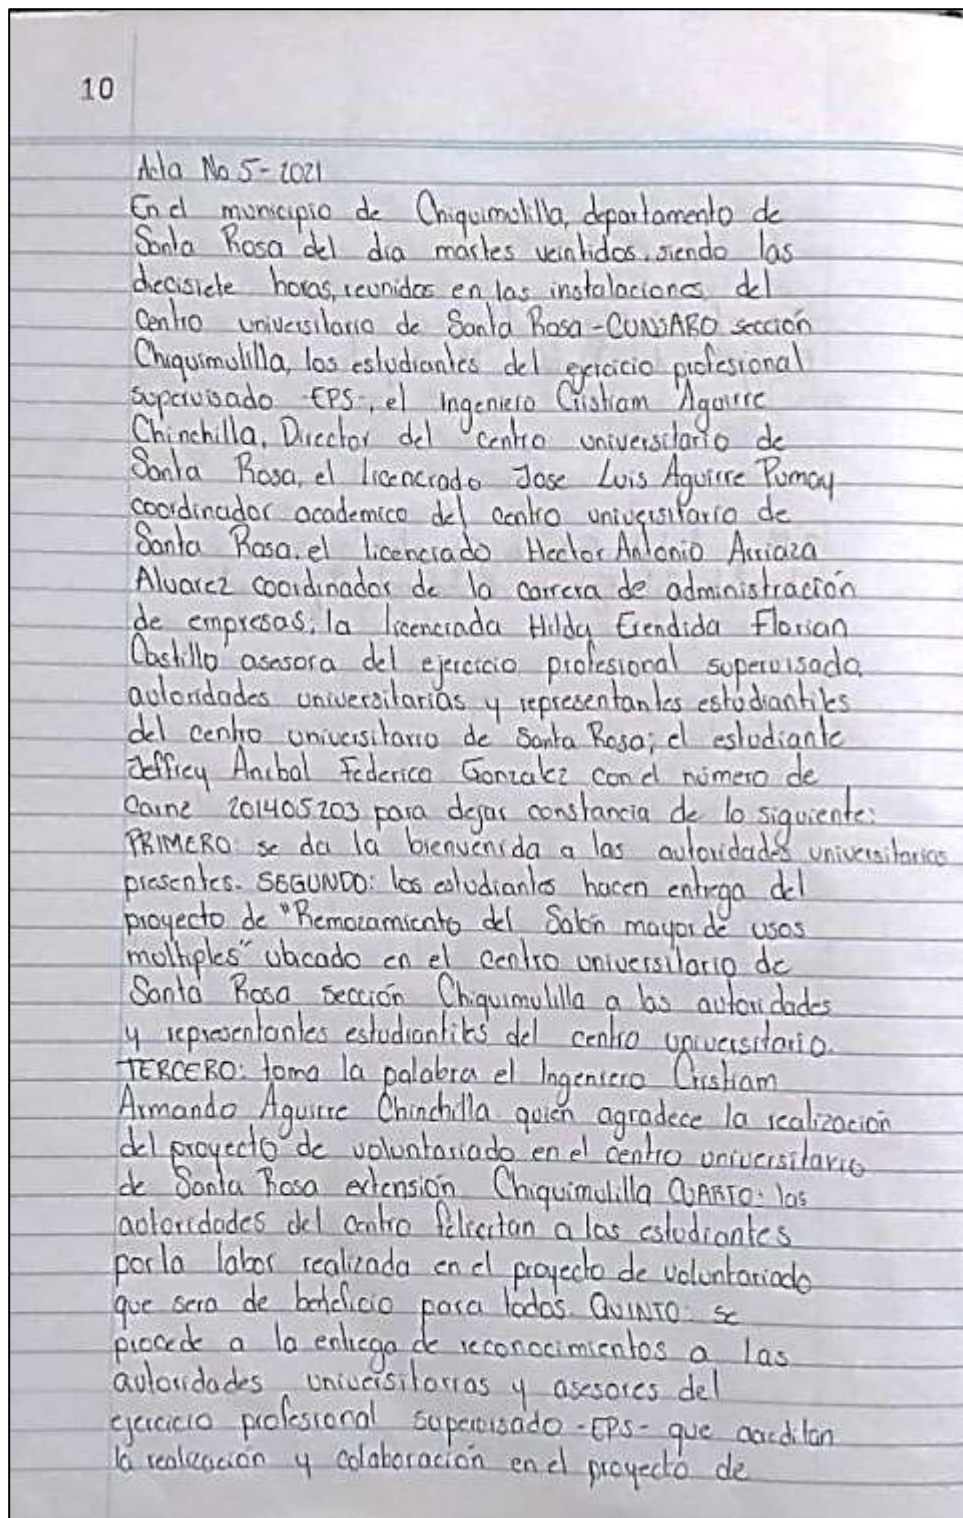 10
Acta No 5-2021
En el municipio de Chiquimulilla, departamento de
Santa Rosa del dia martes veintidos, siendo las
diecisiete horas, reunidos en las instalaciones del
Centro universitario de Santa Rosa -CUNSARO sección
Chiquimulilla, los estudiantes del ejercicio profesional
supervisado -EPS-, el Ingeniero Cristiam Aguirre
Chinchilla, Director del centro universitario de
Santa Rosa, el licenciado Jose Luis Aguirre Pumay
coordinador academico del centro universitario de
Santa Rosa, el licenciado Hector Antonio Arriaza
Alvarez coordinador de la carrera de administración
de empresas, la licenciada Hildy Erendida Florian
Castillo asesora del ejercicio profesional supervisado,
autoridades universitarias y representantes estudiantiles
del centro universitario de Santa Rosa; el estudiante
Jeffrey Anibal Federico Gonzalez con el número de
Carne 201405203 para dejar constancia de lo siguiente:
PRIMERO: se da la bienvenida a las autoridades universitarias
presentes. SEGUNDO: los estudiantes hacen entrega del
proyecto de "Remozamiento del Salón mayor de usos
multiples" ubicado en el centro universitario de
Santa Rosa sección Chiquimulilla a las autoridades
y representantes estudiantiles del centro universitario.
TERCERO: toma la palabra el Ingeniero Cristiam
Armando Aguirre Chinchilla quien agradece la realización
del proyecto de voluntariado en el centro universitario
de Santa Rosa extensión Chiquimulilla CUARTO: las
autoridades del centro felicitan a los estudiantes
por la labor realizada en el proyecto de voluntariado
que sera de beneficio para todos. QUINTO: se
procede a la entrega de reconocimientos a las
autoridades universitarias y asesores del
ejercicio profesional supervisado -EPS- que acreditan
la realización y colaboración en el proyecto de